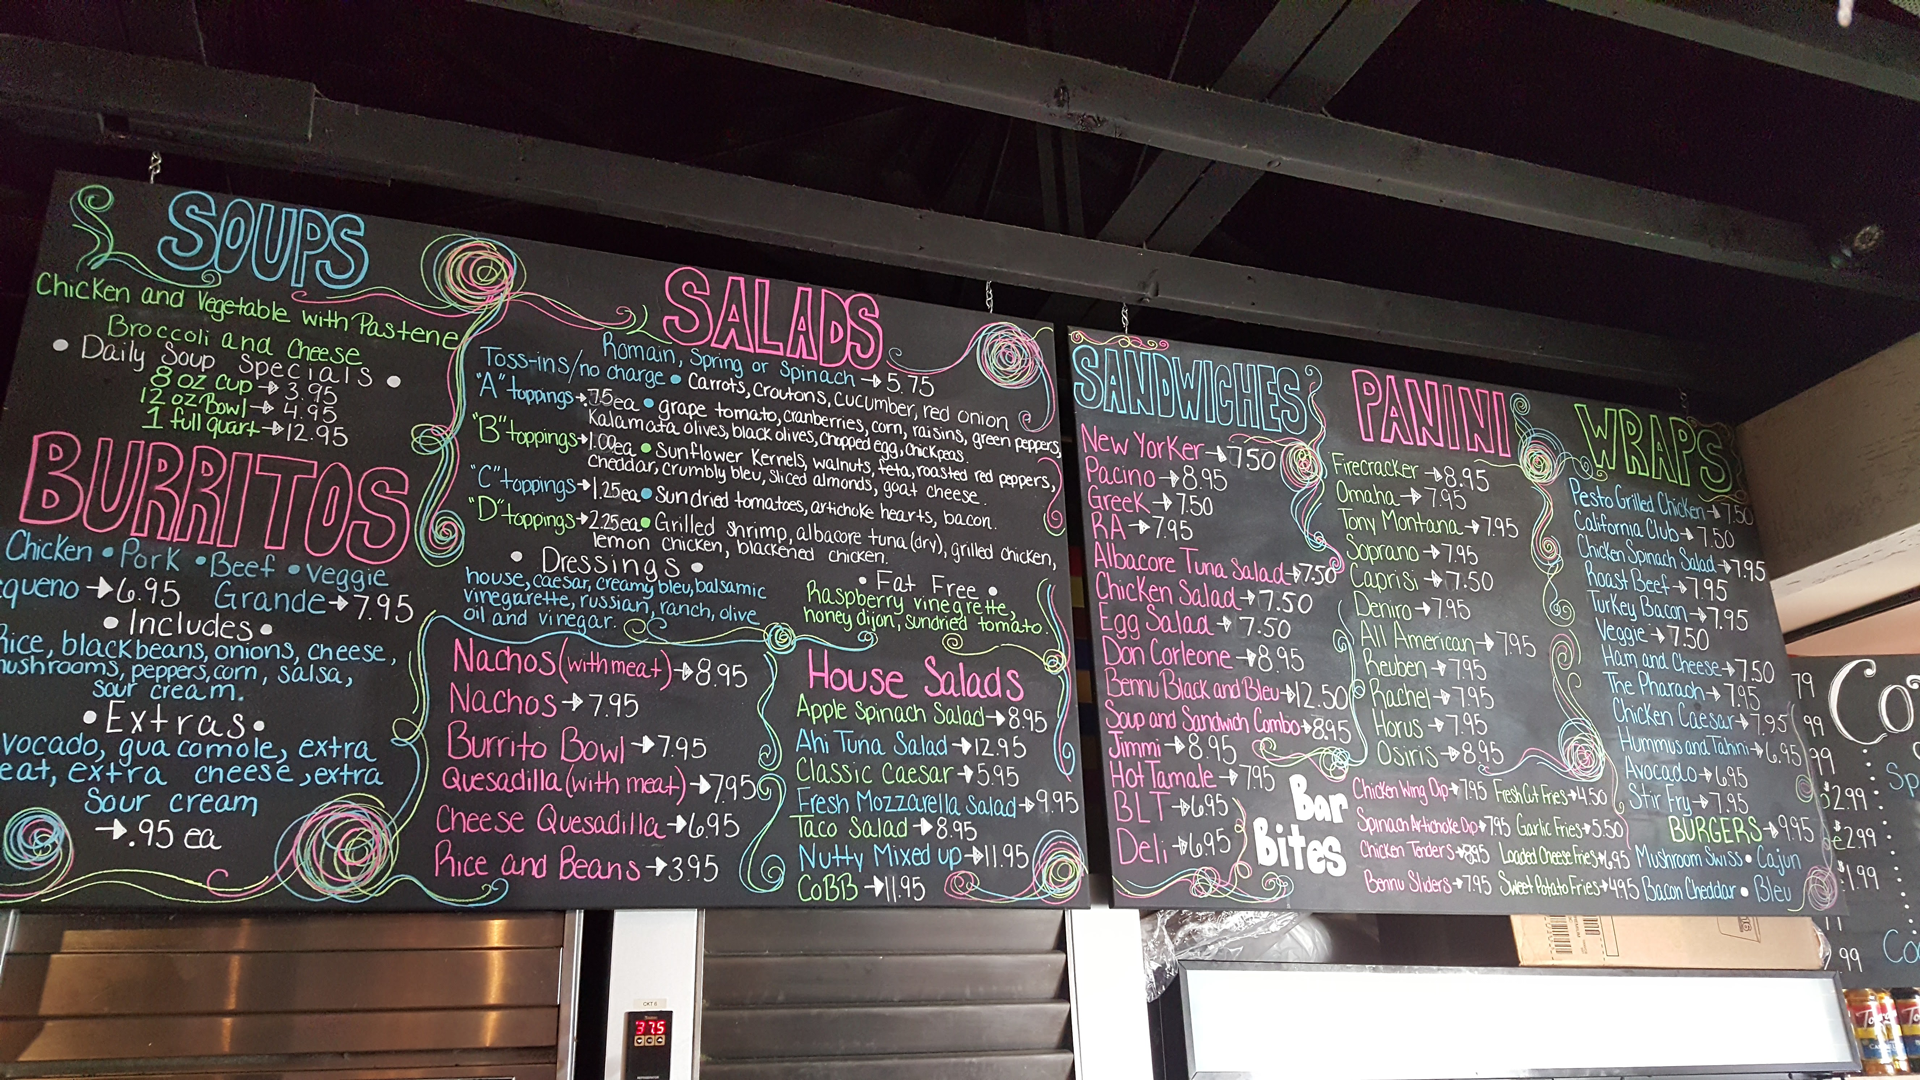 SOUPS
Chicken and Vegetable with Pastene
Broccoli and Cheese
• Daily Soup Specials •
8 oz cup → 3.95
12 oz Bowl → 4.95
1 full quart → 12.95
BURRITOS
Chicken • Pork • Beef • Veggie
queno → 6.95 Grande → 7.95
• Includes •
Rice, black beans, onions, cheese,
mushrooms, peppers, corn, salsa,
sour cream.
• Extras •
vocado, guacomole, extra
eat, extra cheese, extra
Sour cream
→ .95 ea
SALADS
Romain, Spring or Spinach → 5.75
Toss-ins/no charge • Carrots, croutons, cucumber, red onion
"A" toppings → .75ea • grape tomato, cranberries, corn, raisins, green peppers,
Kalamata olives, black olives, chopped egg, chickpeas.
"B" toppings → 1.00ea • Sunflower Kernels, walnuts, feta, roasted red peppers,
cheddar, crumbly bleu, sliced almonds, goat cheese.
"C" toppings → 1.25ea • Sundried tomatoes, artichoke hearts, bacon.
"D" toppings → 2.25ea • Grilled shrimp, albacore tuna (dry), grilled chicken,
lemon chicken, blackened chicken.
• Dressings •
house, caesar, creamy bleu, balsamic
vinegarette, russian, ranch, olive
oil and vinegar.
• Fat Free •
Raspberry vinegrette,
honey dijon, sundried tomato.
Nachos (with meat) → 8.95
Nachos → 7.95
Burrito Bowl → 7.95
Quesadilla (with meat) → 7.95
Cheese Quesadilla → 6.95
Rice and Beans → 3.95
House Salads
Apple Spinach Salad → 8.95
Ahi Tuna Salad → 12.95
Classic Caesar → 5.95
Fresh Mozzarella Salad → 9.95
Taco Salad → 8.95
Nutty Mixed up → 11.95
CoBB → 11.95
SANDWICHES
New Yorker → 7.50
Pacino → 8.95
Greek → 7.50
RA → 7.95
Albacore Tuna Salad → 7.50
Chicken Salad → 7.50
Egg Salad → 7.50
Don Corleone → 8.95
Bennu Black and Bleu → 12.50
Soup and Sandwich Combo → 8.95
Jimmi → 8.95
Hot Tamale → 7.95
BLT → 6.95
Deli → 6.95
PANINI
Firecracker → 8.95
Omaha → 7.95
Tony Montana → 7.95
Soprano → 7.95
Caprisi → 7.50
Deniro → 7.95
All American → 7.95
Reuben → 7.95
Rachel → 7.95
Horus → 7.95
Osiris → 8.95
WRAPS
Pesto Grilled Chicken → 7.50
California Club → 7.50
Chicken Spinach Salad → 7.95
Roast Beef → 7.95
Turkey Bacon → 7.95
Veggie → 7.50
Ham and Cheese → 7.50
The Pharaoh → 7.95
Chicken Caesar → 7.95
Hummus and Tahini → 6.95
Avocado → 6.95
Stir Fry → 7.95
BURGERS → 9.95
Mushroom Swiss • Cajun
Bacon Cheddar • Bleu
Bar
Bites
Chicken Wing Dip → 7.95 Fresh Cut Fries → 4.50
Spinach Artichoke Dip → 7.95 Garlic Fries → 5.50
Chicken Tenders → 8.95 Loaded Cheese Fries → 6.95
Bennu Sliders → 7.95 Sweet Potato Fries → 4.95
Co
Sp
79
99
99
2.99
2.99
1.99
99
Co
37.5